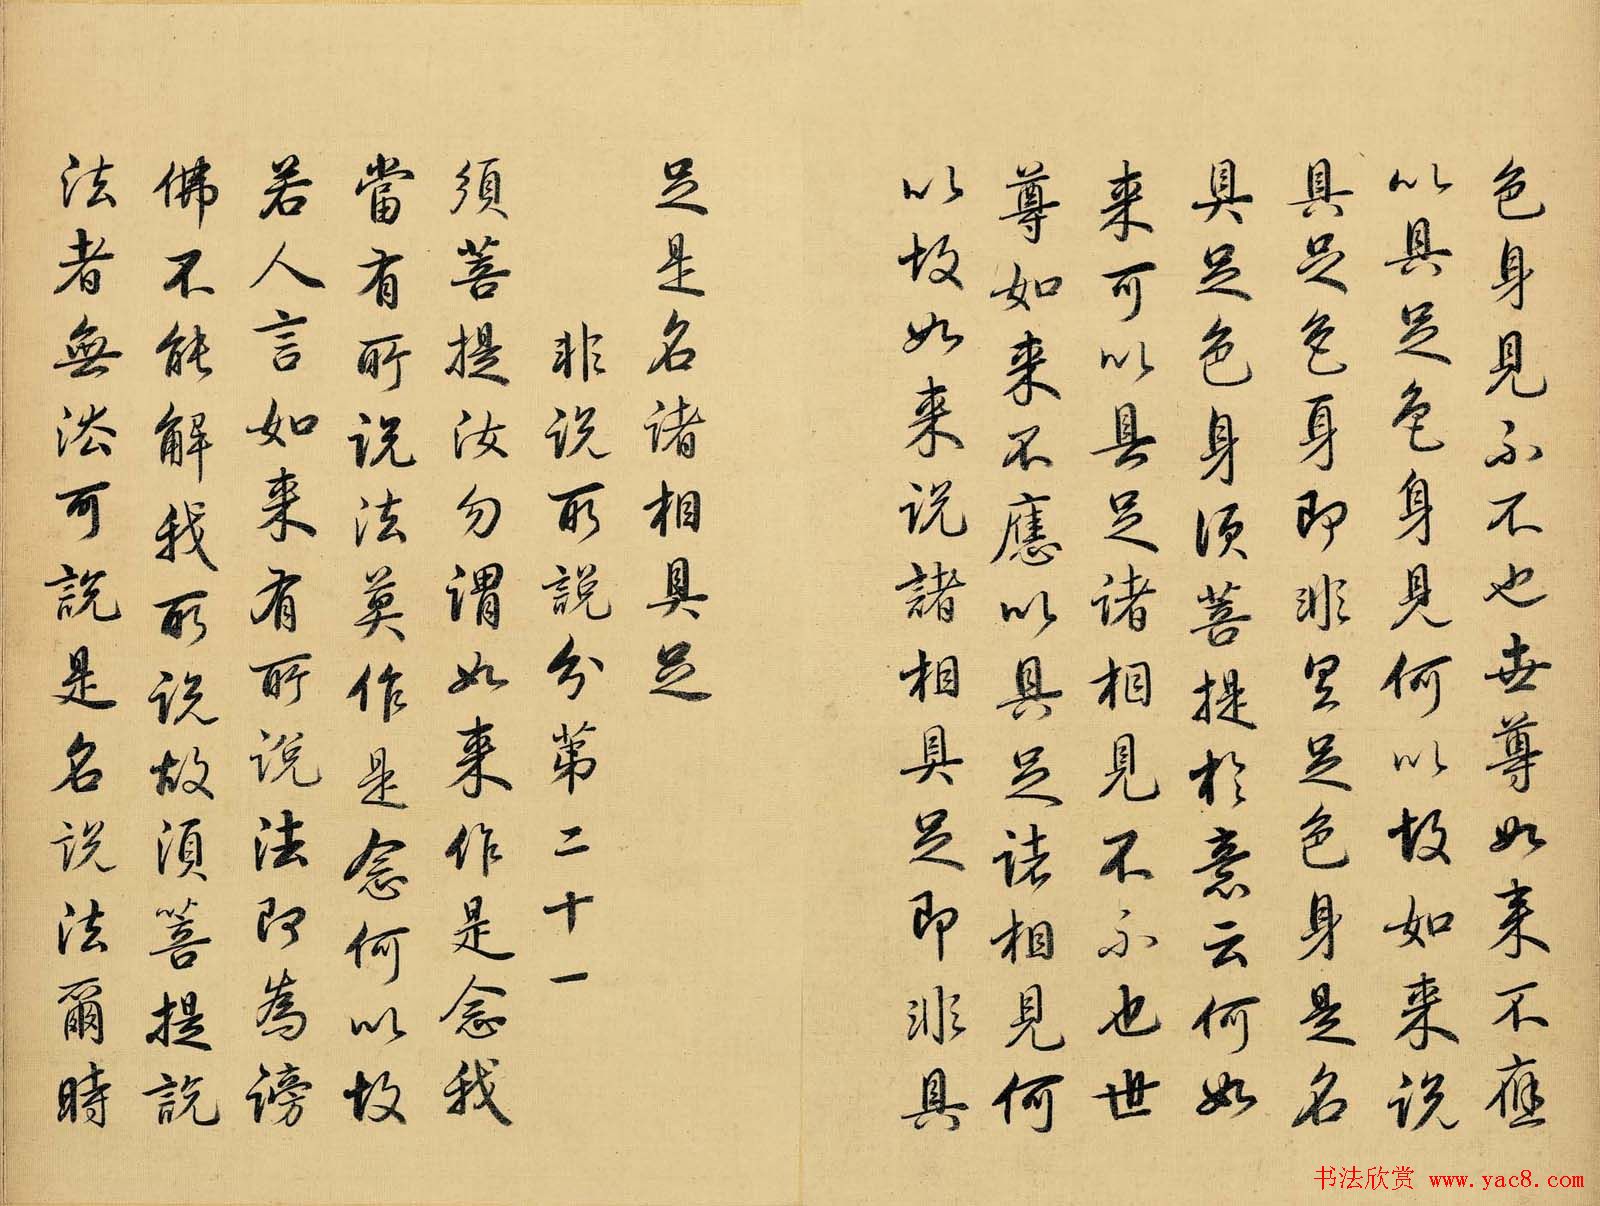 色身見不不也世尊如来不應
以具足色身見何以故如来说
具足色身即非具足色身是名
具足色身須菩提於意云何如
来可以具足诸相見不不也世
尊如来不應以具足诸相見何
以故如来说諸相具足即非具
足是名诸相具足
非说所説分第二十一
須菩提汝勿谓如来作是念我
當有所说法莫作是念何以故
若人言如来有所说法即為謗
佛不能解我所说故須菩提説
法者無法可説是名说法爾時
书法欣赏 www.yac8.com